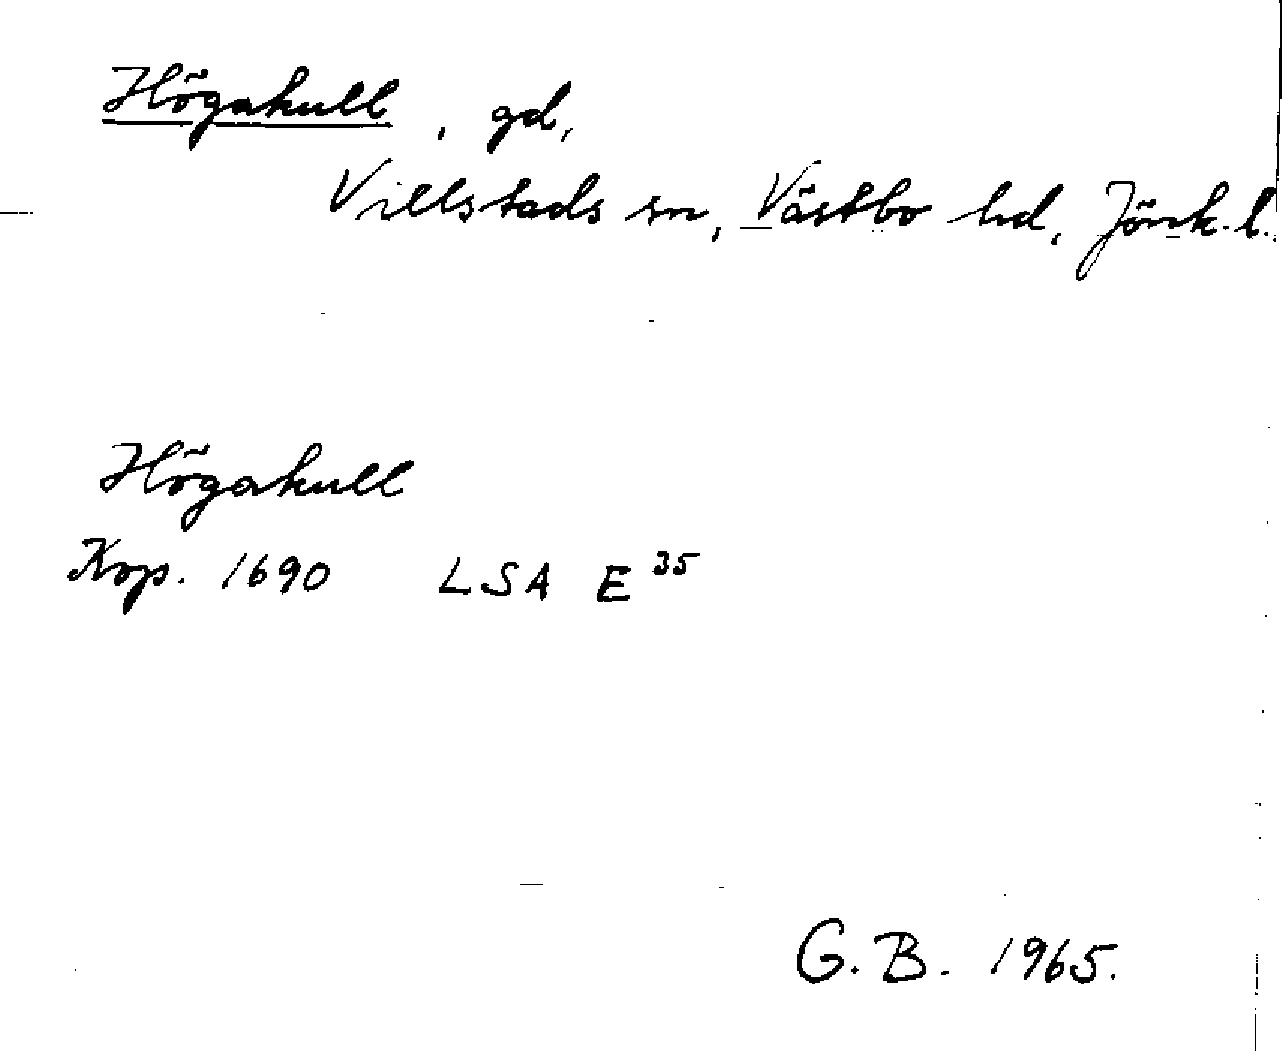 Högakull, gd,
Villstads sn, Västbo hd, Jönk. l.
Högakull
Kop. 1690 LSA E 35
G. B. 1965.